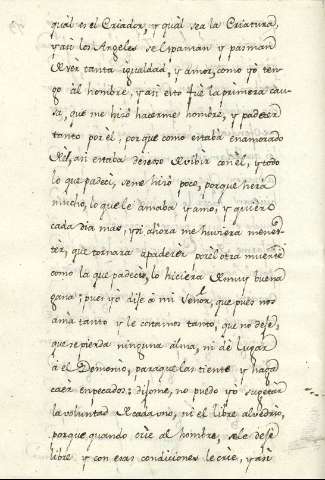 qual es el Criador, y qual sea la Criatura,
y assi los Angeles se espaman y pasman
de ver tanta igualdad, y amor, como yo ten-
go al hombre, y assi esto fue la primera cau-
sa, que me hizo hacerme hombre, y padecer
tanto por èl, porque como estaba enamorado
dèl, assi estaba deseoso de vibir con èl, y todo
lo que padeci, se me hizo poco, porque hera
mucho, lo que le amaba y amo, y quiero
cada dia mas, y si ahora me huviera menes-
tèr, que tornara a padecer por èl otra muerte
como la que padeci, lo hiciera de muy buena
gana: pues yo dije a mi Señor, que pues nos
ama tanto y le costamos tanto, que no deje,
que se pierda ninguna alma, ni de lugar
à el Demonio, para que las tiente y haga
caer en pecados: dijome, no puedo yo sugetar
la voluntad de cada uno, ni el libre albedrio,
porque quando crie al hombre, le deje
libre y con esas condiciones le crie, y assi